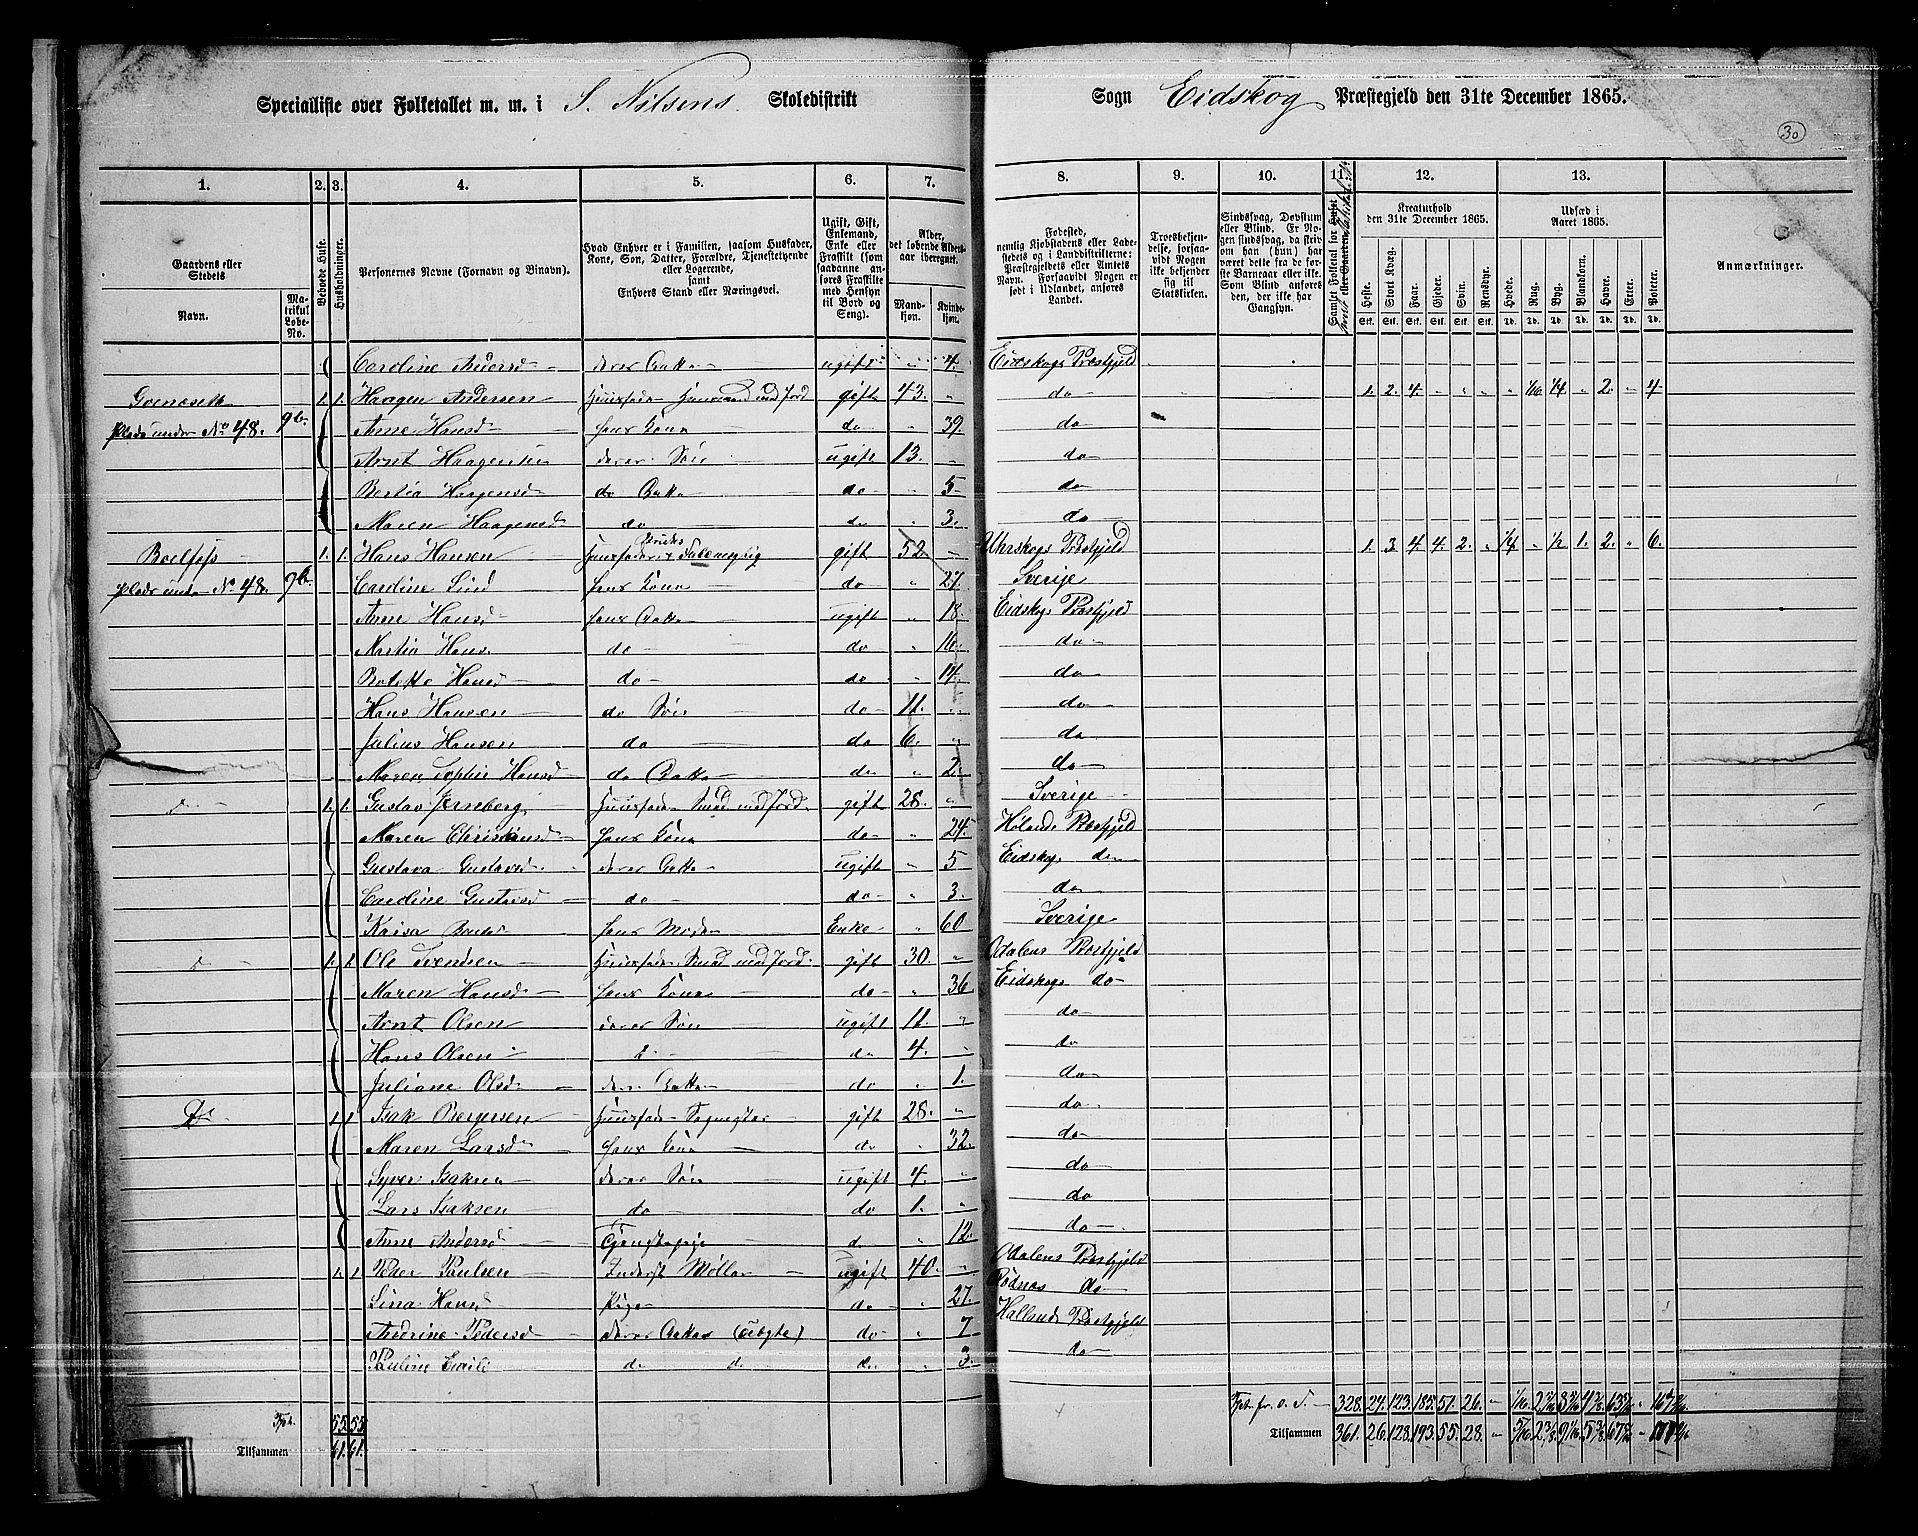 Specialliste over Folketallet m. m. i S. Nilsens Skoledistrikt Sogn Eidskog Præstegjeld den 31te December 1865.
30
1. 2. 3. 4. 5. 6. 7. 8. 9. 10. 11. 12. 13.
Gaardens eller Stedets
Navn.
Matrikul Løbe-No.
Beboede Huse.
Husholdninger.
Personernes Navne (Fornavn og Binavn).
Hvad Enhver er i Familien, saasom Husfader, Kone, Søn, Datter, Forældre, Tjenestetyende eller Logerende, samt Enhvers Stand eller Næringsvei.
Ugift, Gift, Enkemand, Enke eller Fraskilt (som saadanne anføres Fraskilte med Hensyn til Bord og Seng).
Alder, det løbende Alders-aar iberegnet.
Mandkjøn. Kvindekjøn.
Fødested, nemlig Kjøbstadens eller Ladestedets og i Landdistrikterne: Præstegjeldets eller Amtets Navn. Forsaavidt Nogen er født i Udlandet, anføres Landet.
Troesbekjendelse, forsaavidt Nogen ikke bekjender sig til Statskirken.
Sindssvag, Døvstum eller Blind. Er Nogen sindssvag, da skrives, om han (hun) har været dette fra de første Barneaar eller ikke. Som Blind anføres den, der ikke har Gangsyn.
Kreaturhold den 31te December 1865.
Heste. Stort Kvæg. Faar. Gjeder. Svin. Rensdyr.
Udsæd i Aaret 1865.
Hvede. Rug. Byg. Blandkorn. Havre. Erter. Poteter.
Anmærkninger.
Caroline Andersd deres Datter ugift " 4. Eidskogs Præstgjeld
1. 1. Haagen Andersen Huusfader Huusmand med Jord gift 43. " do 1. 2. 4. " " " " 1/16 1/4 " 2. " 4
Plads under No 48. 9b. Anne Hansd hans Kone do " 39 do
Arnt Haagensen deres Søn ugift 13. " do
Bertea Haagensd do Datter do " 5 do
Maren Haagensd do do " 3. do
1. 1. Hans Hansen Huusfader gift 52 " Uhrskogs Præstgjeld 1. 3. 4. 4. 2. " 1/4 " 1/2 1. 2. " 6.
Plads under No 48. 9b. Caroline Lind hans Kone do " 27. Sverige
Anne Hansd hans Datter ugift " 18. Eidskogs Præstgjeld
Martea Hans. do do " 16. do
Hansd do do " 14. do
Hans Hansen do Søn do 11. " do
Julius Hansen do do 6. " do
Maren Sophie Hansd do Datter do " 2. do
1. 1. Gustav Jernberg Huusfader Smed med Jord gift 28. " Sverige
Maren Christiansd hans Kone do " 24. Hølands Præstgjeld
Gustava Gustavsd deres Datter ugift " 5 Eidskogs do
Caroline Gustavsd do do " 3. do
Kaisa hans Moder Enke " 60 Sverige
1. 1. Ole Svendsen Huusfader Smed med Jord gift 30. " Odalens Præstgjeld
Maren Hansd hans Kone do " 36 Eidskogs do
Arnt Olsen deres Søn ugift 11. " do
Hans Olsen do 4. " do
Juliane Olsd deres Datter do " 1. do
Do 1 1 Isak Bergersen Huusfader gift 28. " do
Maren Larsd hans Kone do " 32. do
Syver Isaksen deres Søn ugift 4. " do
Lars Isaksen do do 1. " do
Anne Andersd Tjenestepige do " 12. do
1. 1 Peder Paulsen Inderst Møller ugift 40. " Odalens Præstgjeld
Lina Hansd Pige do " 27. Rødnæs do
Pedersd deres Datter (uægte) do " 7 Præstgjeld
Pauline do do do " 3. do
Tsp. 55 55 328. 24. 123. 185. 51. 26. "
Tilsammen 61. 61. Tilsammen 361. 26. 128. 193. 55. 28. "